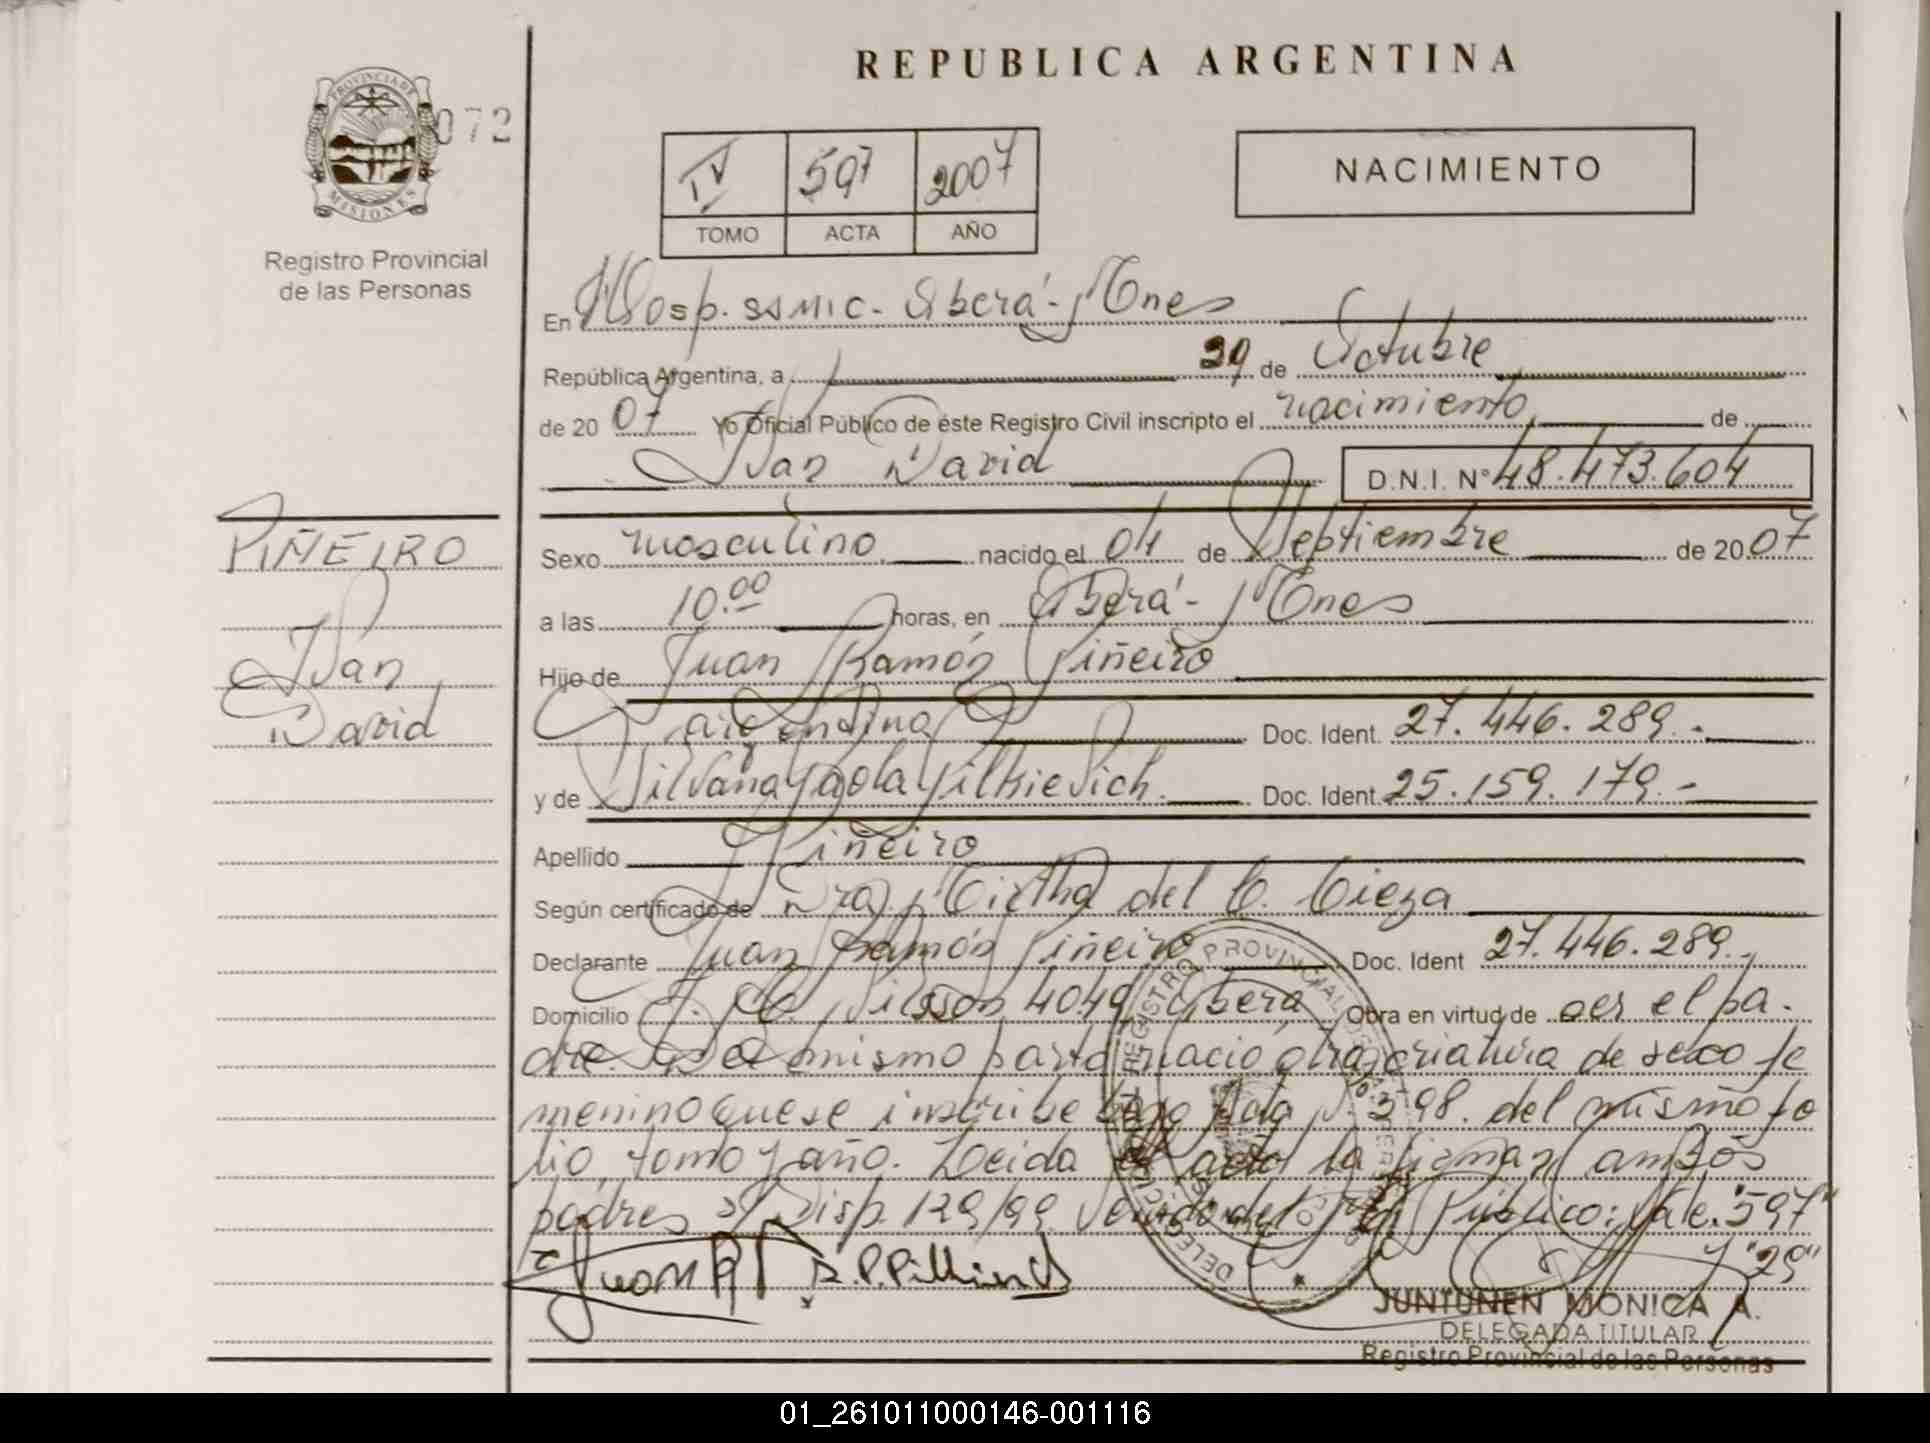 REPUBLICA ARGENTINA
PROVINCIA DE
MISIONES
072
Registro Provincial
de las Personas
IV 597 2007
TOMO ACTA AÑO
NACIMIENTO
En Hosp. SSMIC- Oberá- Mnes
República Argentina, a 29 de Octubre
de 2007 Yo Oficial Público de éste Registro Civil inscripto el nacimiento de
Ivan David D.N.I. N° 48.473.604
PIÑEIRO
Ivan
David
Sexo masculino nacido el 04 de Septiembre de 2007
a las 10.00 horas, en Oberá- Mnes
Hijo de Juan Ramón Piñeiro
argentino Doc. Ident. 27.446.289.-
y de Silvana Paola Doc. Ident 25.159.179.-
Apellido Piñeiro
Según certificado de Dra. Mirtha del C. Cieza
Declarante Juan Ramón Piñeiro Doc. Ident 27.446.289.-
Domicilio 4049 Oberá Obra en virtud de ser el pa-
dre. mismo parto nació otra criatura de sexo fe
menino que se inscribe bajo Acta N° 598. del mismo fo
lio, tomo y año. Leida el acta la firman ambos
padres s/ Disp. 129/99. Público: Vale: "597"
y "29"
REGISTRO PROVINCIAL
JUNTUNEN MONICA A.
DELEGADA TITULAR
Registro Provincial de las Personas
01_261011000146-001116